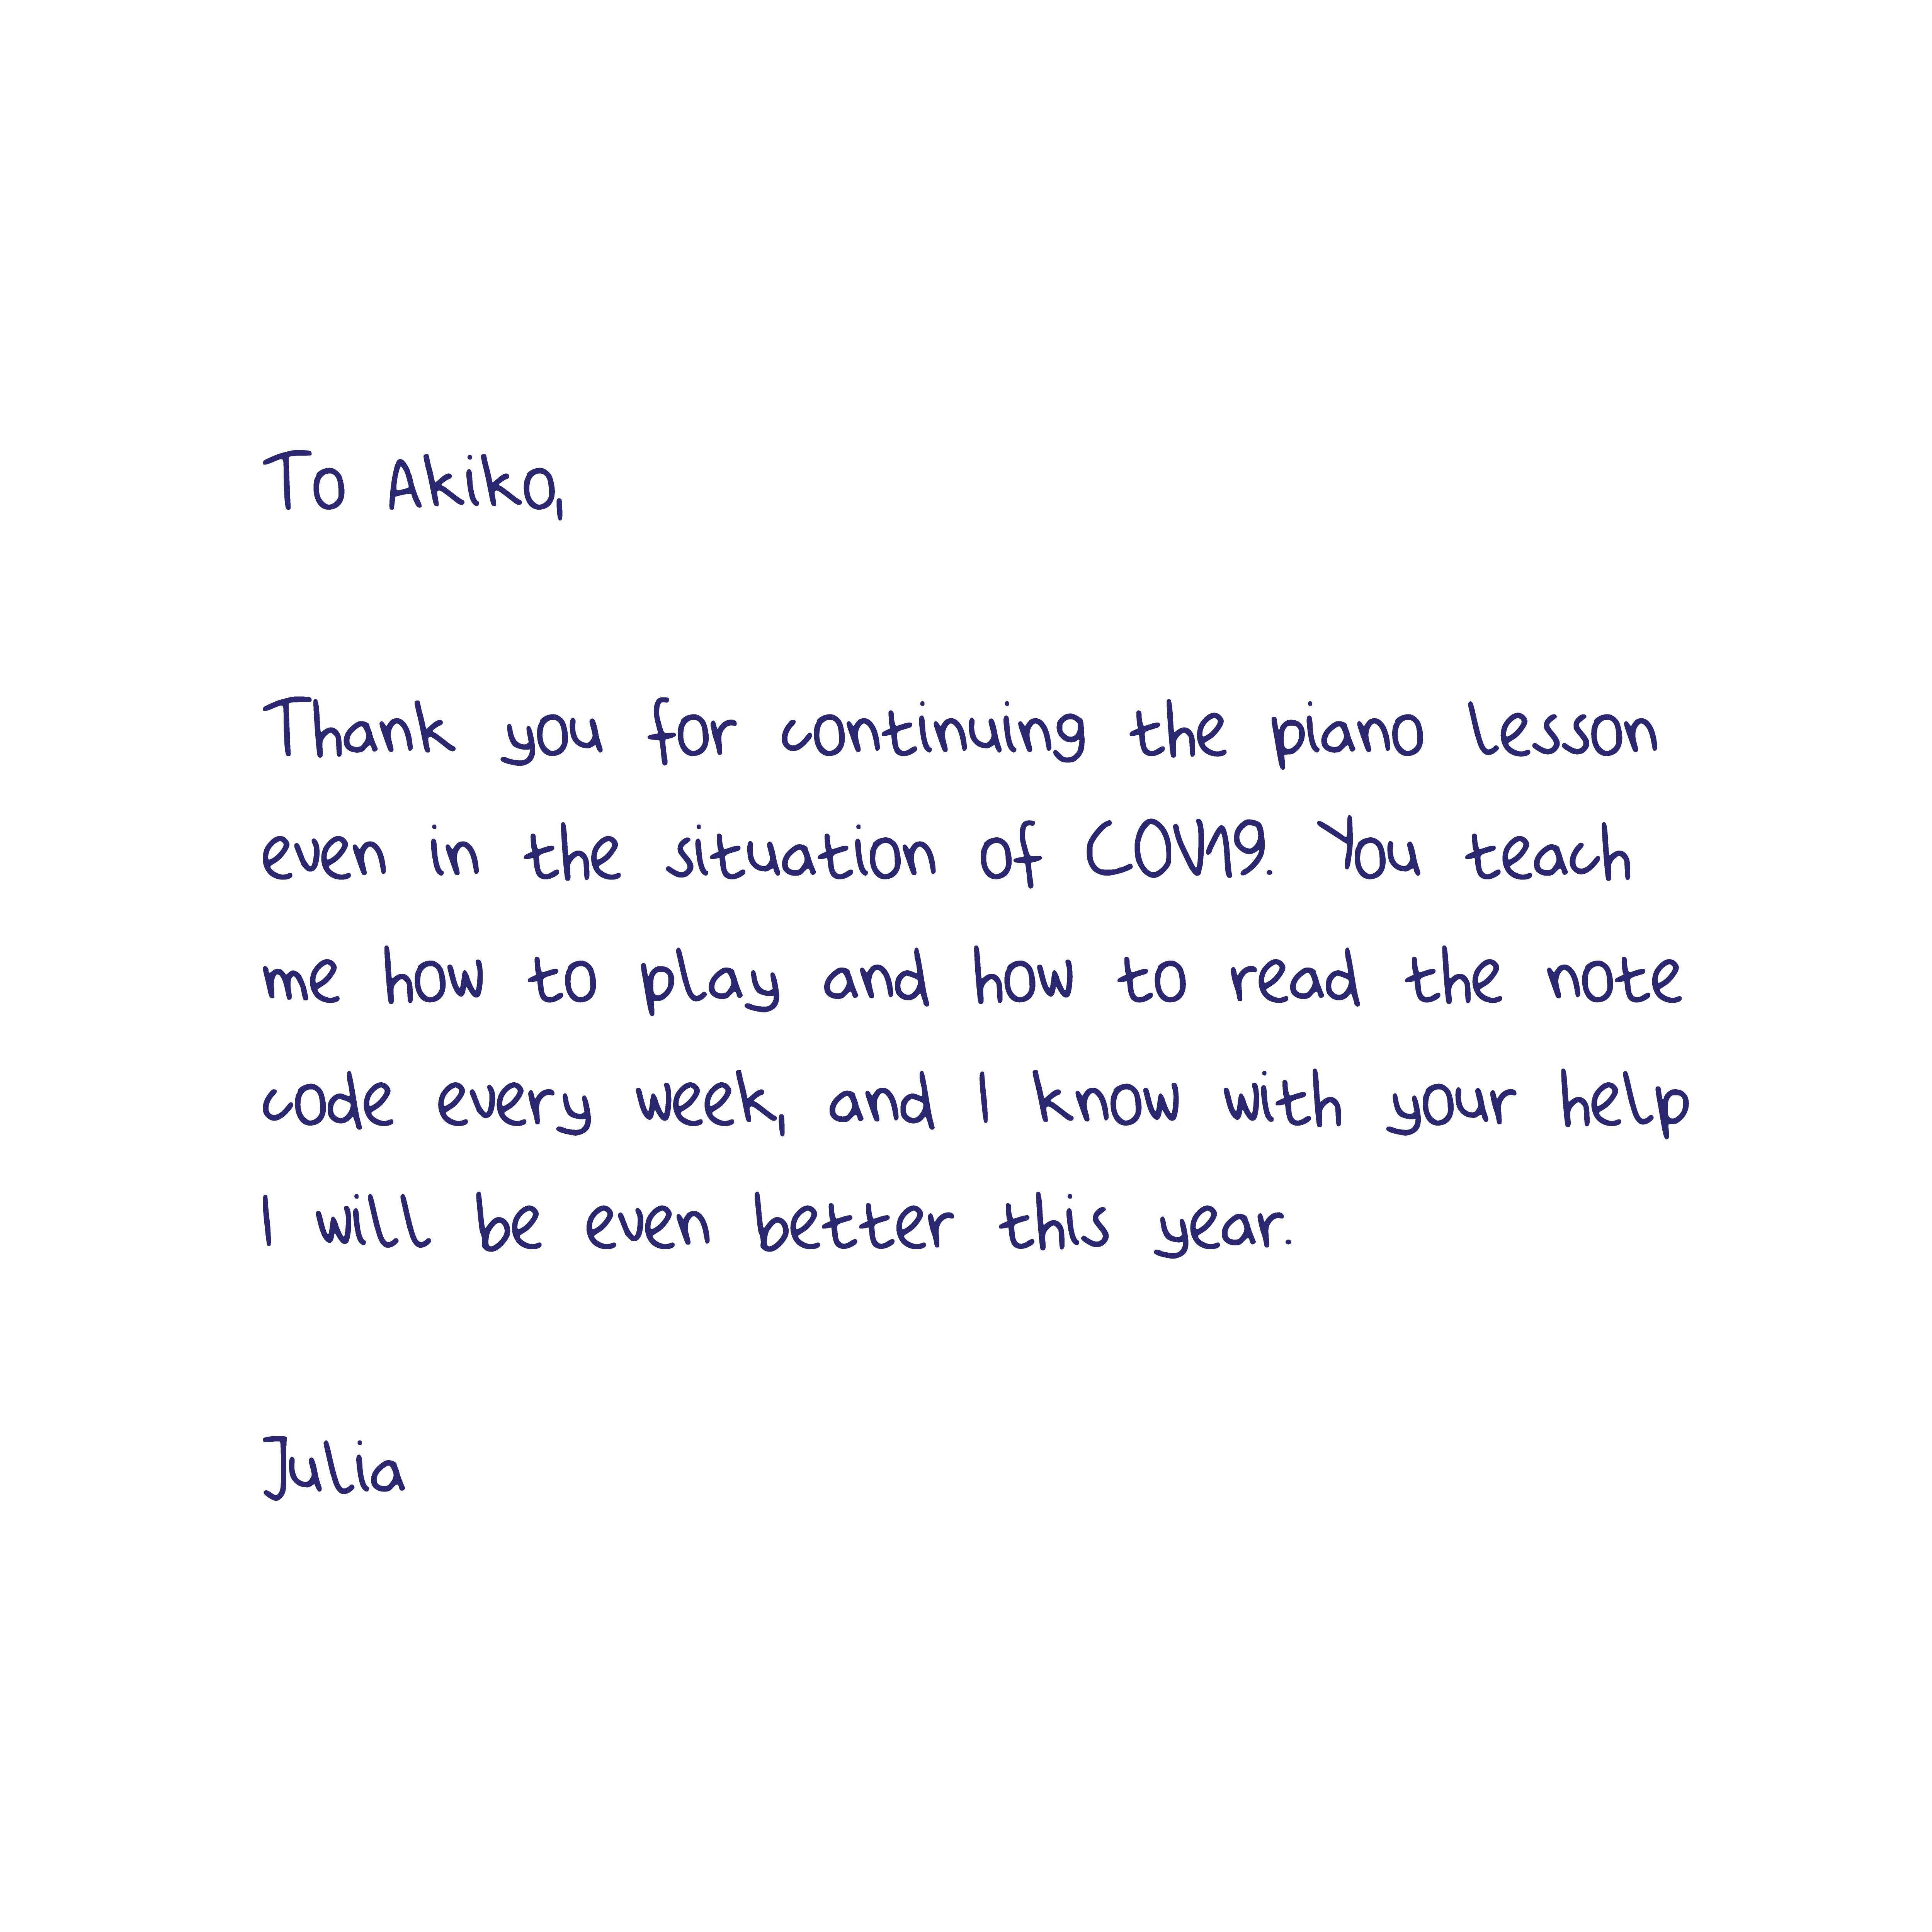 To Akiko,
Thank you for continuing the piano lesson
even in the situation of COVID19. You teach
me how to play and how to read the note
code every week, and I know with your help
I will be even better this year.
Julia